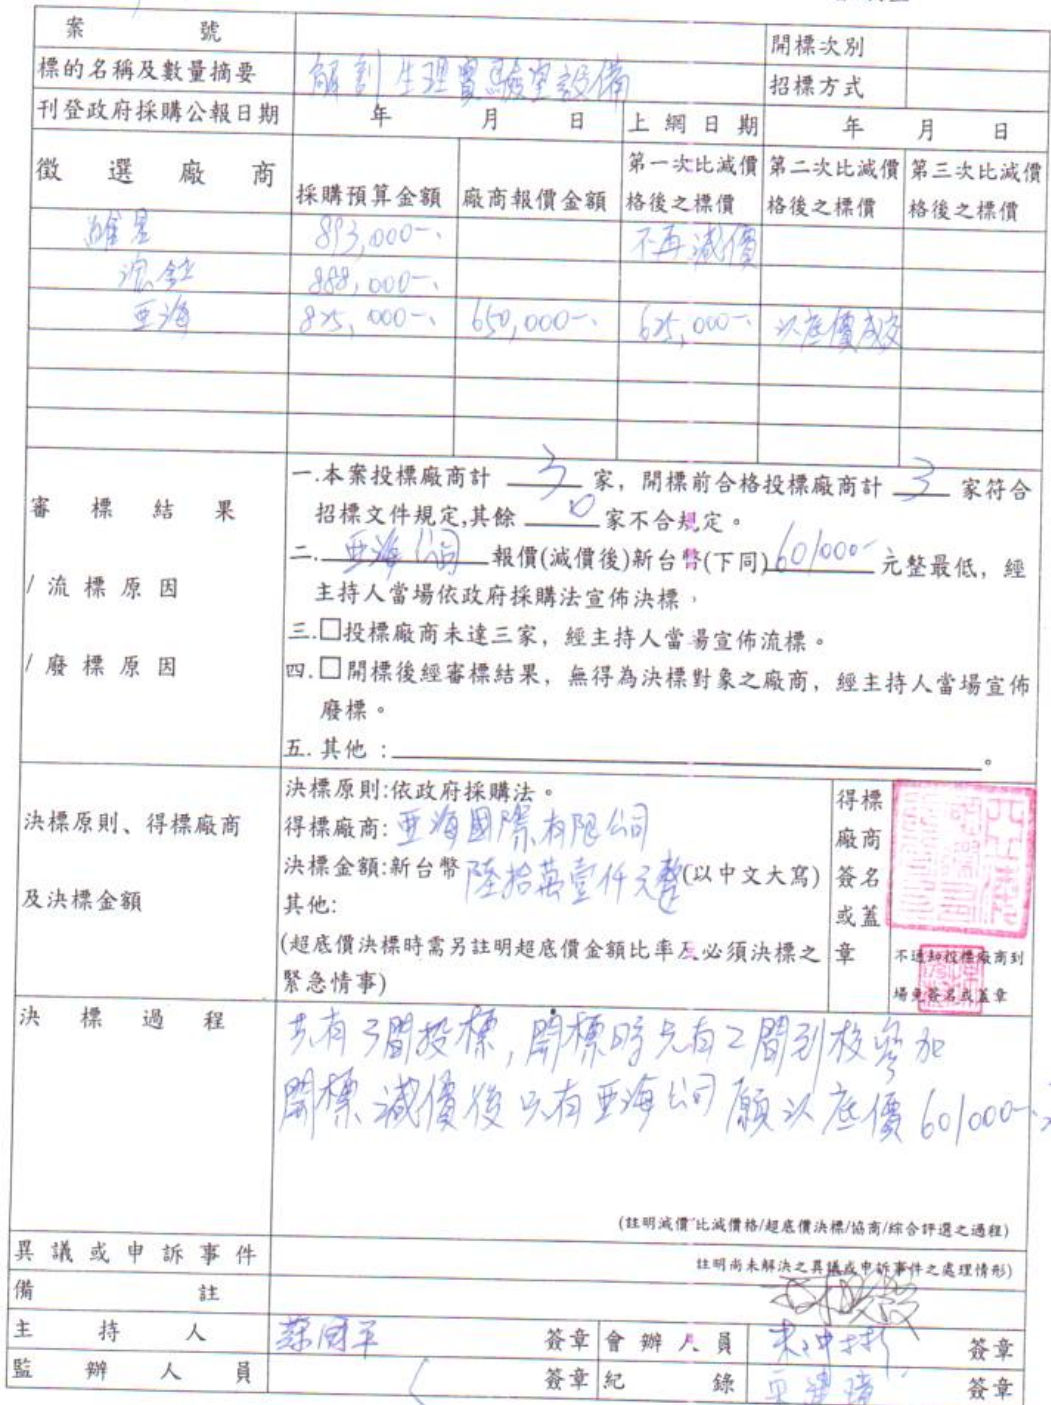 案 號
開標次別
標的名稱及數量摘要 解剖生理實驗室設備
招標方式
刊登政府採購公報日期 年 月 日 上網日期 年 月 日
徵選廠商 採購預算金額 廠商報價金額 第一次比減價格後之標價 第二次比減價格後之標價 第三次比減價格後之標價
893,000-、 不再減價
888,000-、
亞海 825,000-、 650,000-、 625,000-、 以底價成交
審標結果
/流標原因
/廢標原因
一.本案投標廠商計 3 家，開標前合格投標廠商計 3 家符合
招標文件規定,其餘 0 家不合規定。
二. 亞海公司 報價(減價後)新台幣(下同) 601000- 元整最低，經
主持人當場依政府採購法宣佈決標，
三.□投標廠商未達三家，經主持人當場宣佈流標。
四.□開標後經審標結果，無得為決標對象之廠商，經主持人當場宣佈
廢標。
五.其他：。
決標原則、得標廠商
及決標金額
決標原則:依政府採購法。
得標廠商: 亞海國際有限公司
決標金額:新台幣 陸拾萬壹仟元整 (以中文大寫)
其他:
(超底價決標時需另註明超底價金額比率及必須決標之
緊急情事)
得標
廠商
簽名
或蓋
章
不通知投標廠商到
場免簽名或蓋章
決標過程
共有3間投標，開標時只有2間到校參加
開標 減價後只有亞海公司願以底價601000-、
(註明減價 比減價格/超底價決標/協商/綜合評選之過程)
異議或申訴事件 註明尚未解決之異議或申訴事件之處理情形)
備 註
主持人 簽章 會辦人員 簽章
監辦人員 簽章 紀錄 簽章